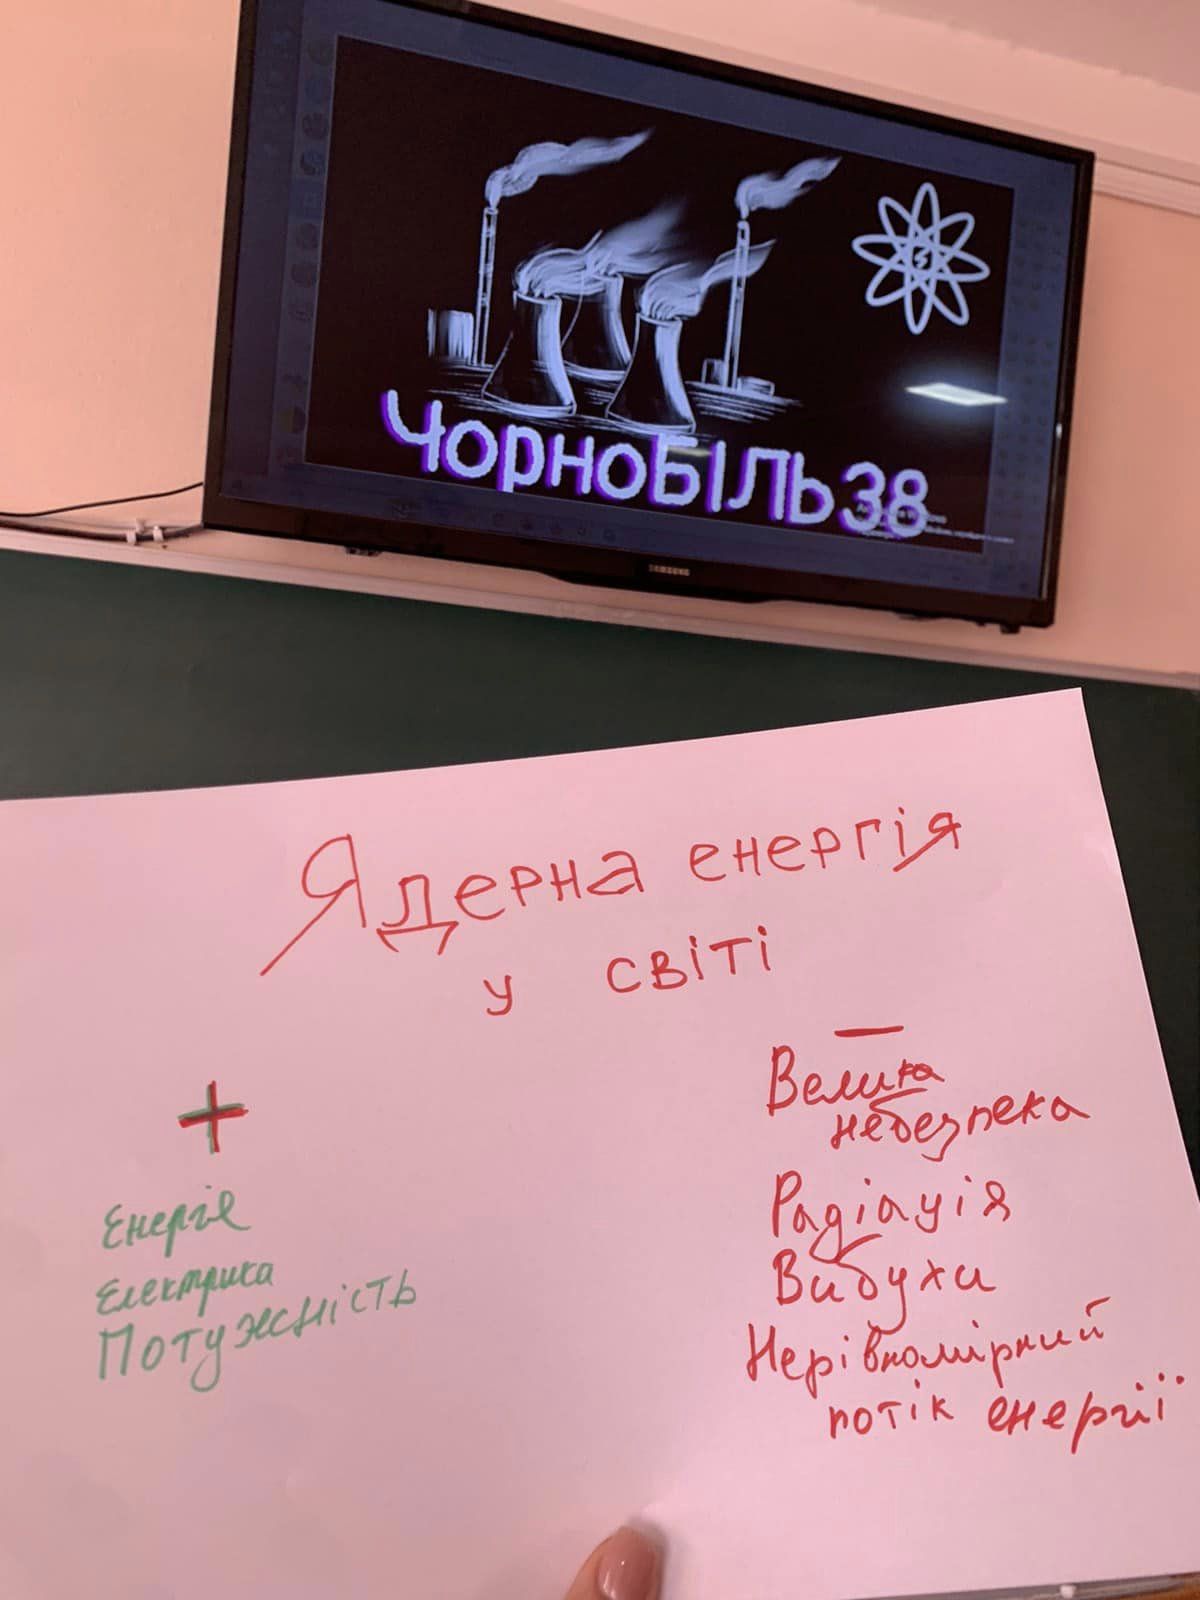 ЧОРНОБІЛЬ 38
SAMSUNG
Ядерна енергія
у світі
+
—
Велика
небезпека
Радіація
Вибухи
Нерівномірний
потік енергії
Енергія
Електрика
Потужність